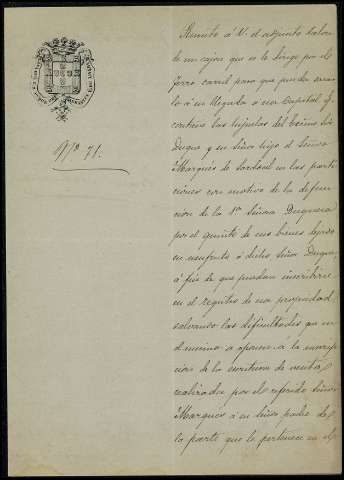 Nº 71.
Remito á V. el adjunto talon
de un cajon que se le dirige por el
ferro carril para que pueda
lo á su llegada á esa Capital y
contiene las hijuelas del Excmo Sor
Duque y su Señor hijo el Señor
Marqués de Sardoal en las parti
ciones con motivo de la defun
cion de la Sra Señora Duquesa
por el quinto de sus bienes dejado
en usufruto á dicho Señor Duque
á fin de que puedan inscribirse
en el registro de esa propiedad,
salvando las dificultades que en
el mismo á la inscrip
cion de la escritura de venta
realizada por el referido Señor
Marqués á su Señor padre de
la parte que le pertenece en el